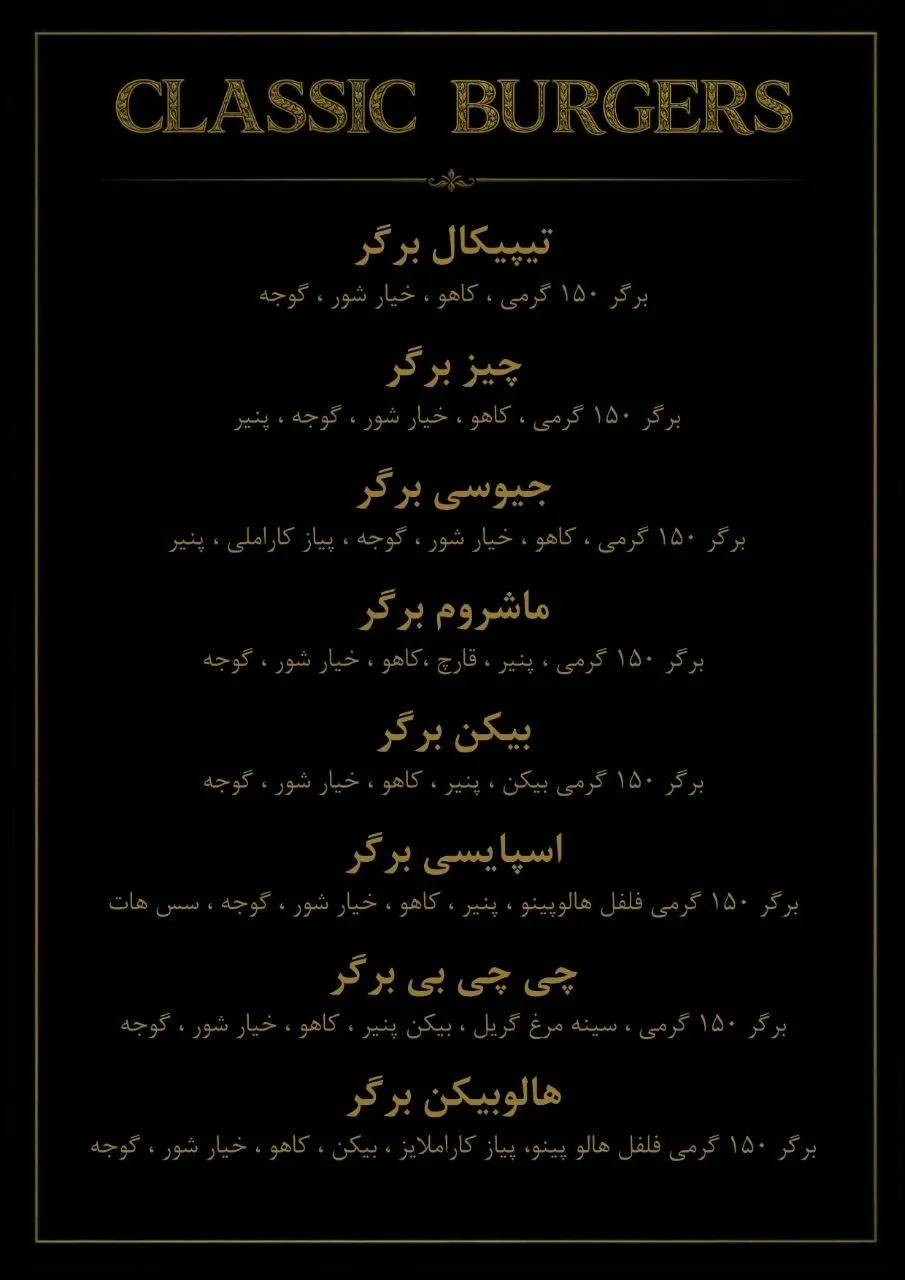 CLASSIC BURGERS
تیپیکال برگر
برگر ۱۵۰ گرمی ، کاهو ، خیار شور ، گوجه
چیز برگر
برگر ۱۵۰ گرمی ، کاهو ، خیار شور ، گوجه ، پنیر
جیوسی برگر
برگر ۱۵۰ گرمی ، کاهو ، خیار شور ، گوجه ، پیاز کاراملی ، پنیر
ماشروم برگر
برگر ۱۵۰ گرمی ، پنیر ، قارچ ،کاهو ، خیار شور ، گوجه
بیکن برگر
برگر ۱۵۰ گرمی بیکن ، پنیر ، کاهو ، خیار شور ، گوجه
اسپایسی برگر
برگر ۱۵۰ گرمی فلفل هالوپینو ، پنیر ، کاهو ، خیار شور ، گوجه ، سس هات
چی چی بی برگر
برگر ۱۵۰ گرمی ، سینه مرغ گریل ، بیکن پنیر ، کاهو ، خیار شور ، گوجه
هالوبیکن برگر
برگر ۱۵۰ گرمی فلفل هالو پینو، پیاز کاراملایز ، بیکن ، کاهو ، خیار شور ، گوجه